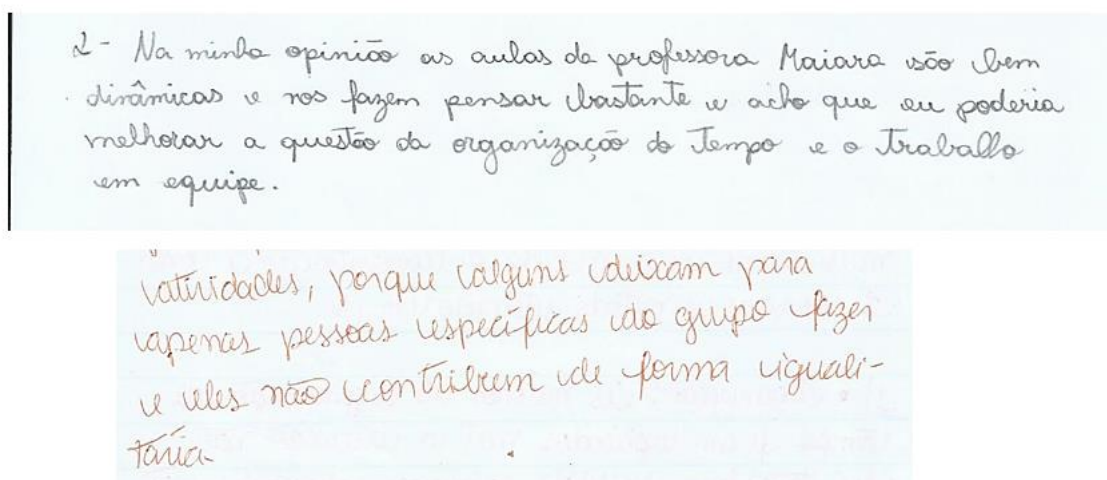 2- Na minha opinião as aulas da professora Maiara são bem
dinâmicas e nos fazem pensar bastante e acho que eu poderia
melhorar a questão da organização do Tempo e o Trabalho
em equipe.
atividades, porque alguns deixam para
apenas pessoas específicas do grupo fazer
e eles não contribuem de forma iguali-
tária